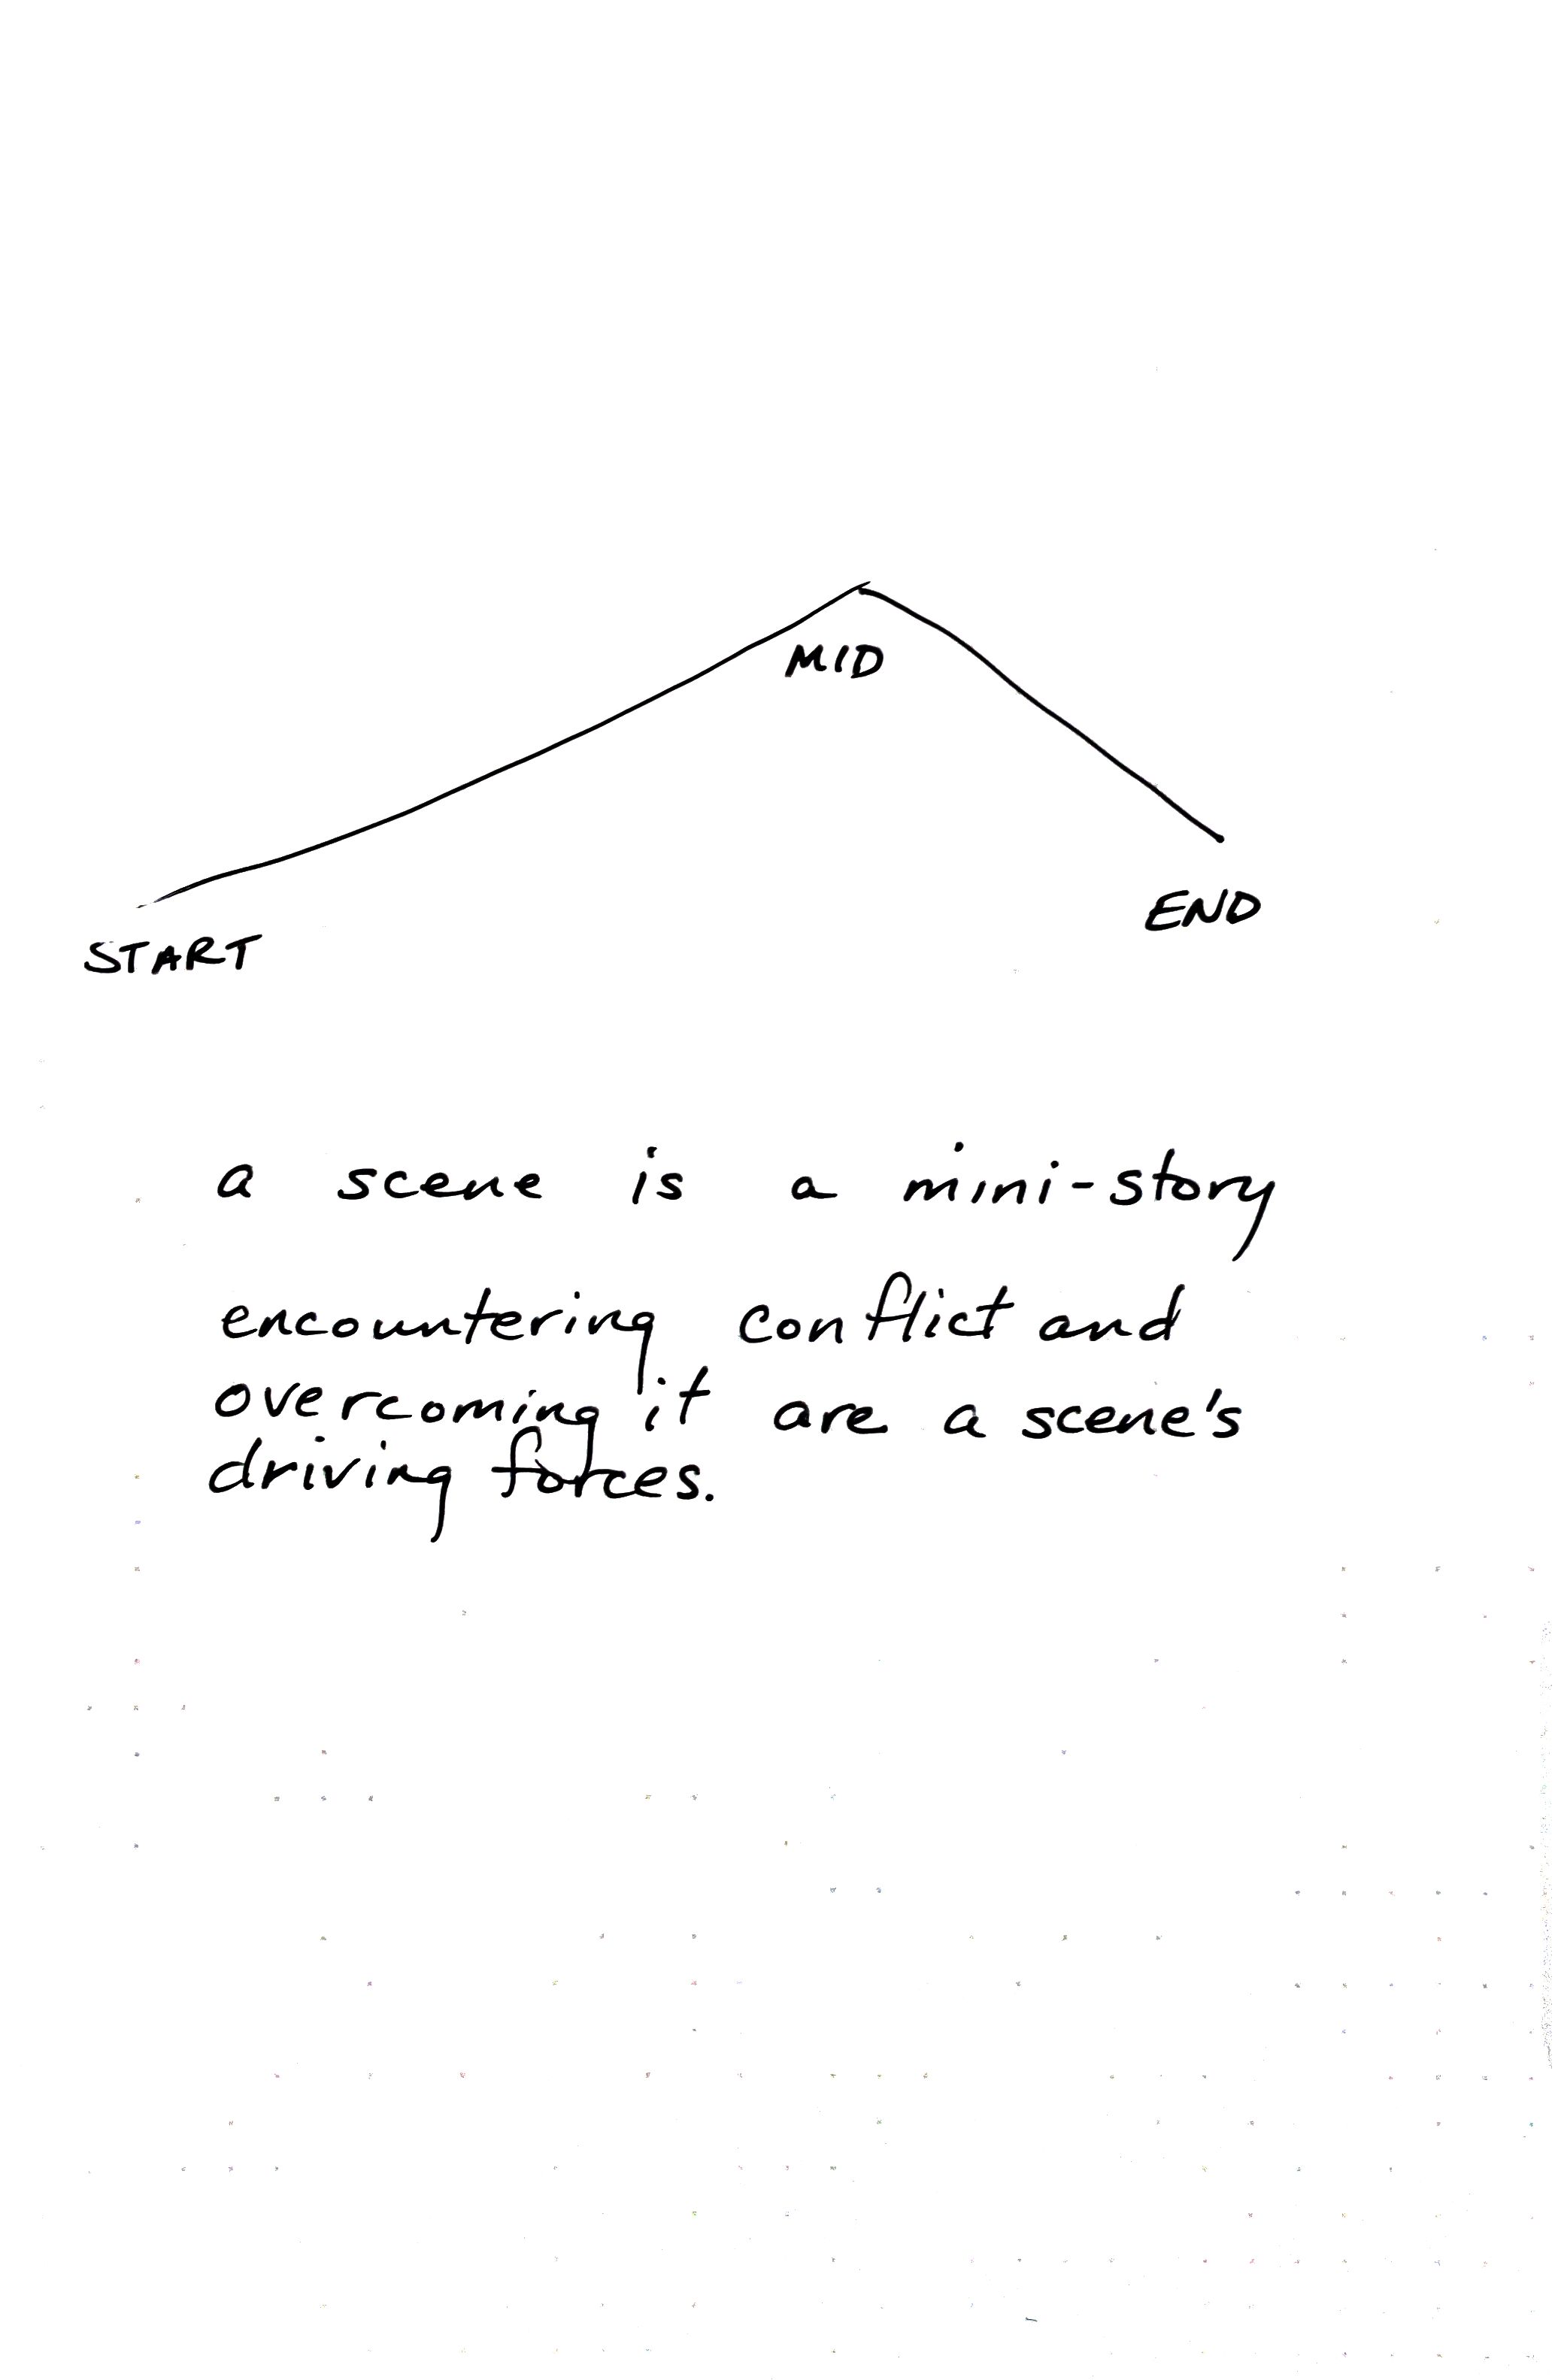 MID
END
START
a scene is a mini-story
encountering conflict and
overcoming it are a scene's
driving forces.